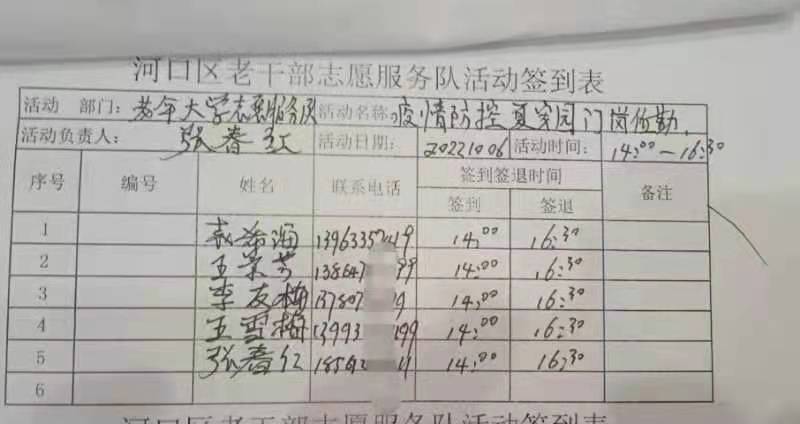 河口区老干部志愿服务队活动签到表
活动 部门：老年大学志愿服务队 活动名称：疫情防控夏家园门岗值勤
活动负责人： 张春红 活动日期： 20221006 活动时间： 14:00—16:30
序号 编号 姓名 联系电话 签到签退时间 备注
签到 签退
1 希海 1396335 19 14:00 16:30
2 王荣芳 13864 99 14:00 16:30
3 李友梅 13780 9 14:00 16:30
4 王雪梅 13993 199 14:00 16:30
5 张春红 1856 14:00 16:30
6
河口区老干部志愿服务队活动签到表